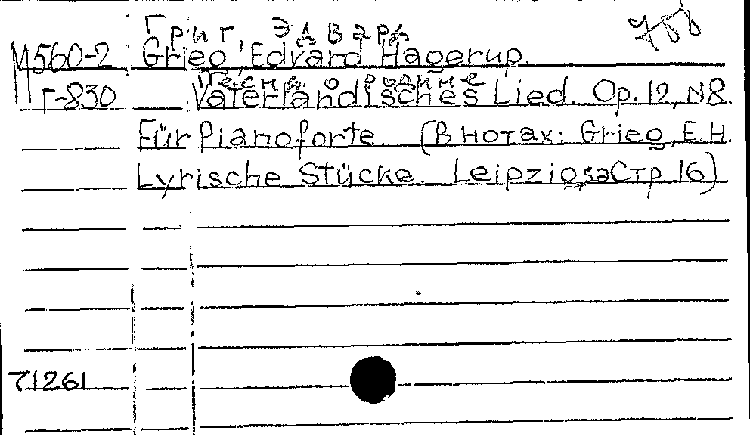 788
Григ, Эдвард
М560-2 Grieg, Edvard Hagerup.
Г-830 Vaterländisches Lied. Op. 12, N8.
Für Pianoforte (В нотах: Grieg, E. H.
Lyrische Stücke Leipzig, s.a Стр 16)
71261